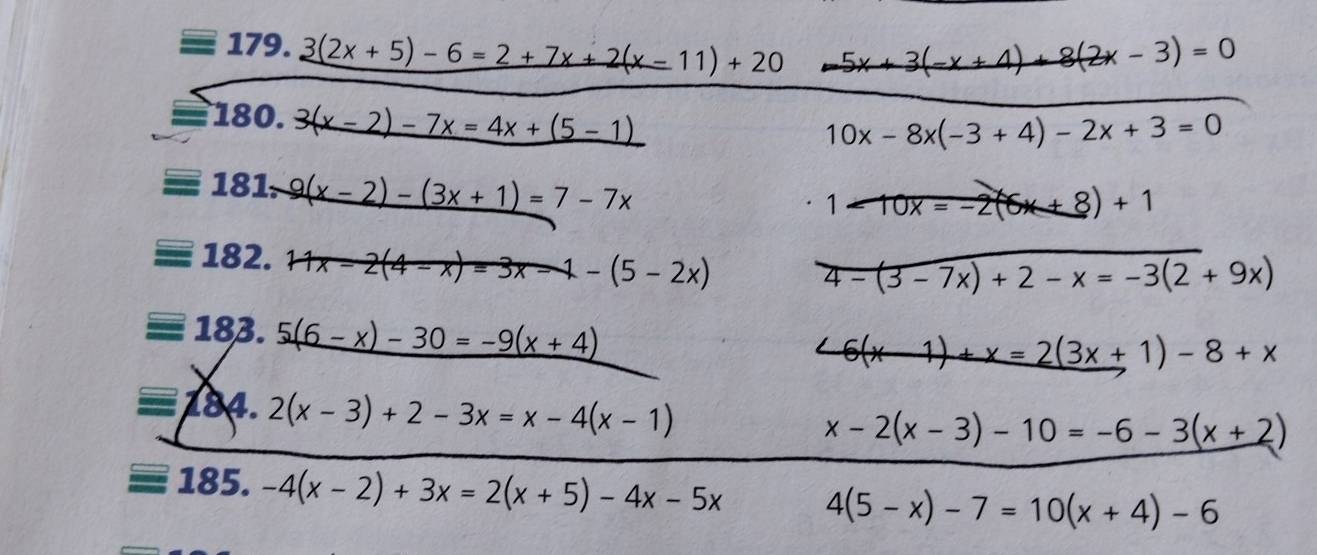 179. 3(2x + 5) − 6 = 2 + 7x + 2(x − 11) + 20 −5x + 3(−x + 4) + 8(2x − 3) = 0
180. 3(x − 2) − 7x = 4x + (5 − 1) 10x − 8x(−3 + 4) − 2x + 3 = 0
181. 9(x − 2) − (3x + 1) = 7 − 7x 1 − 10x = −2(6x + 8) + 1
182. 11x − 2(4 − x) = 3x − 1 − (5 − 2x) 4 − (3 − 7x) + 2 − x = −3(2 + 9x)
183. 5(6 − x) − 30 = −9(x + 4) 6(x − 1) + x = 2(3x + 1) − 8 + x
184. 2(x − 3) + 2 − 3x = x − 4(x − 1) x − 2(x − 3) − 10 = −6 − 3(x + 2)
185. −4(x − 2) + 3x = 2(x + 5) − 4x − 5x 4(5 − x) − 7 = 10(x + 4) − 6